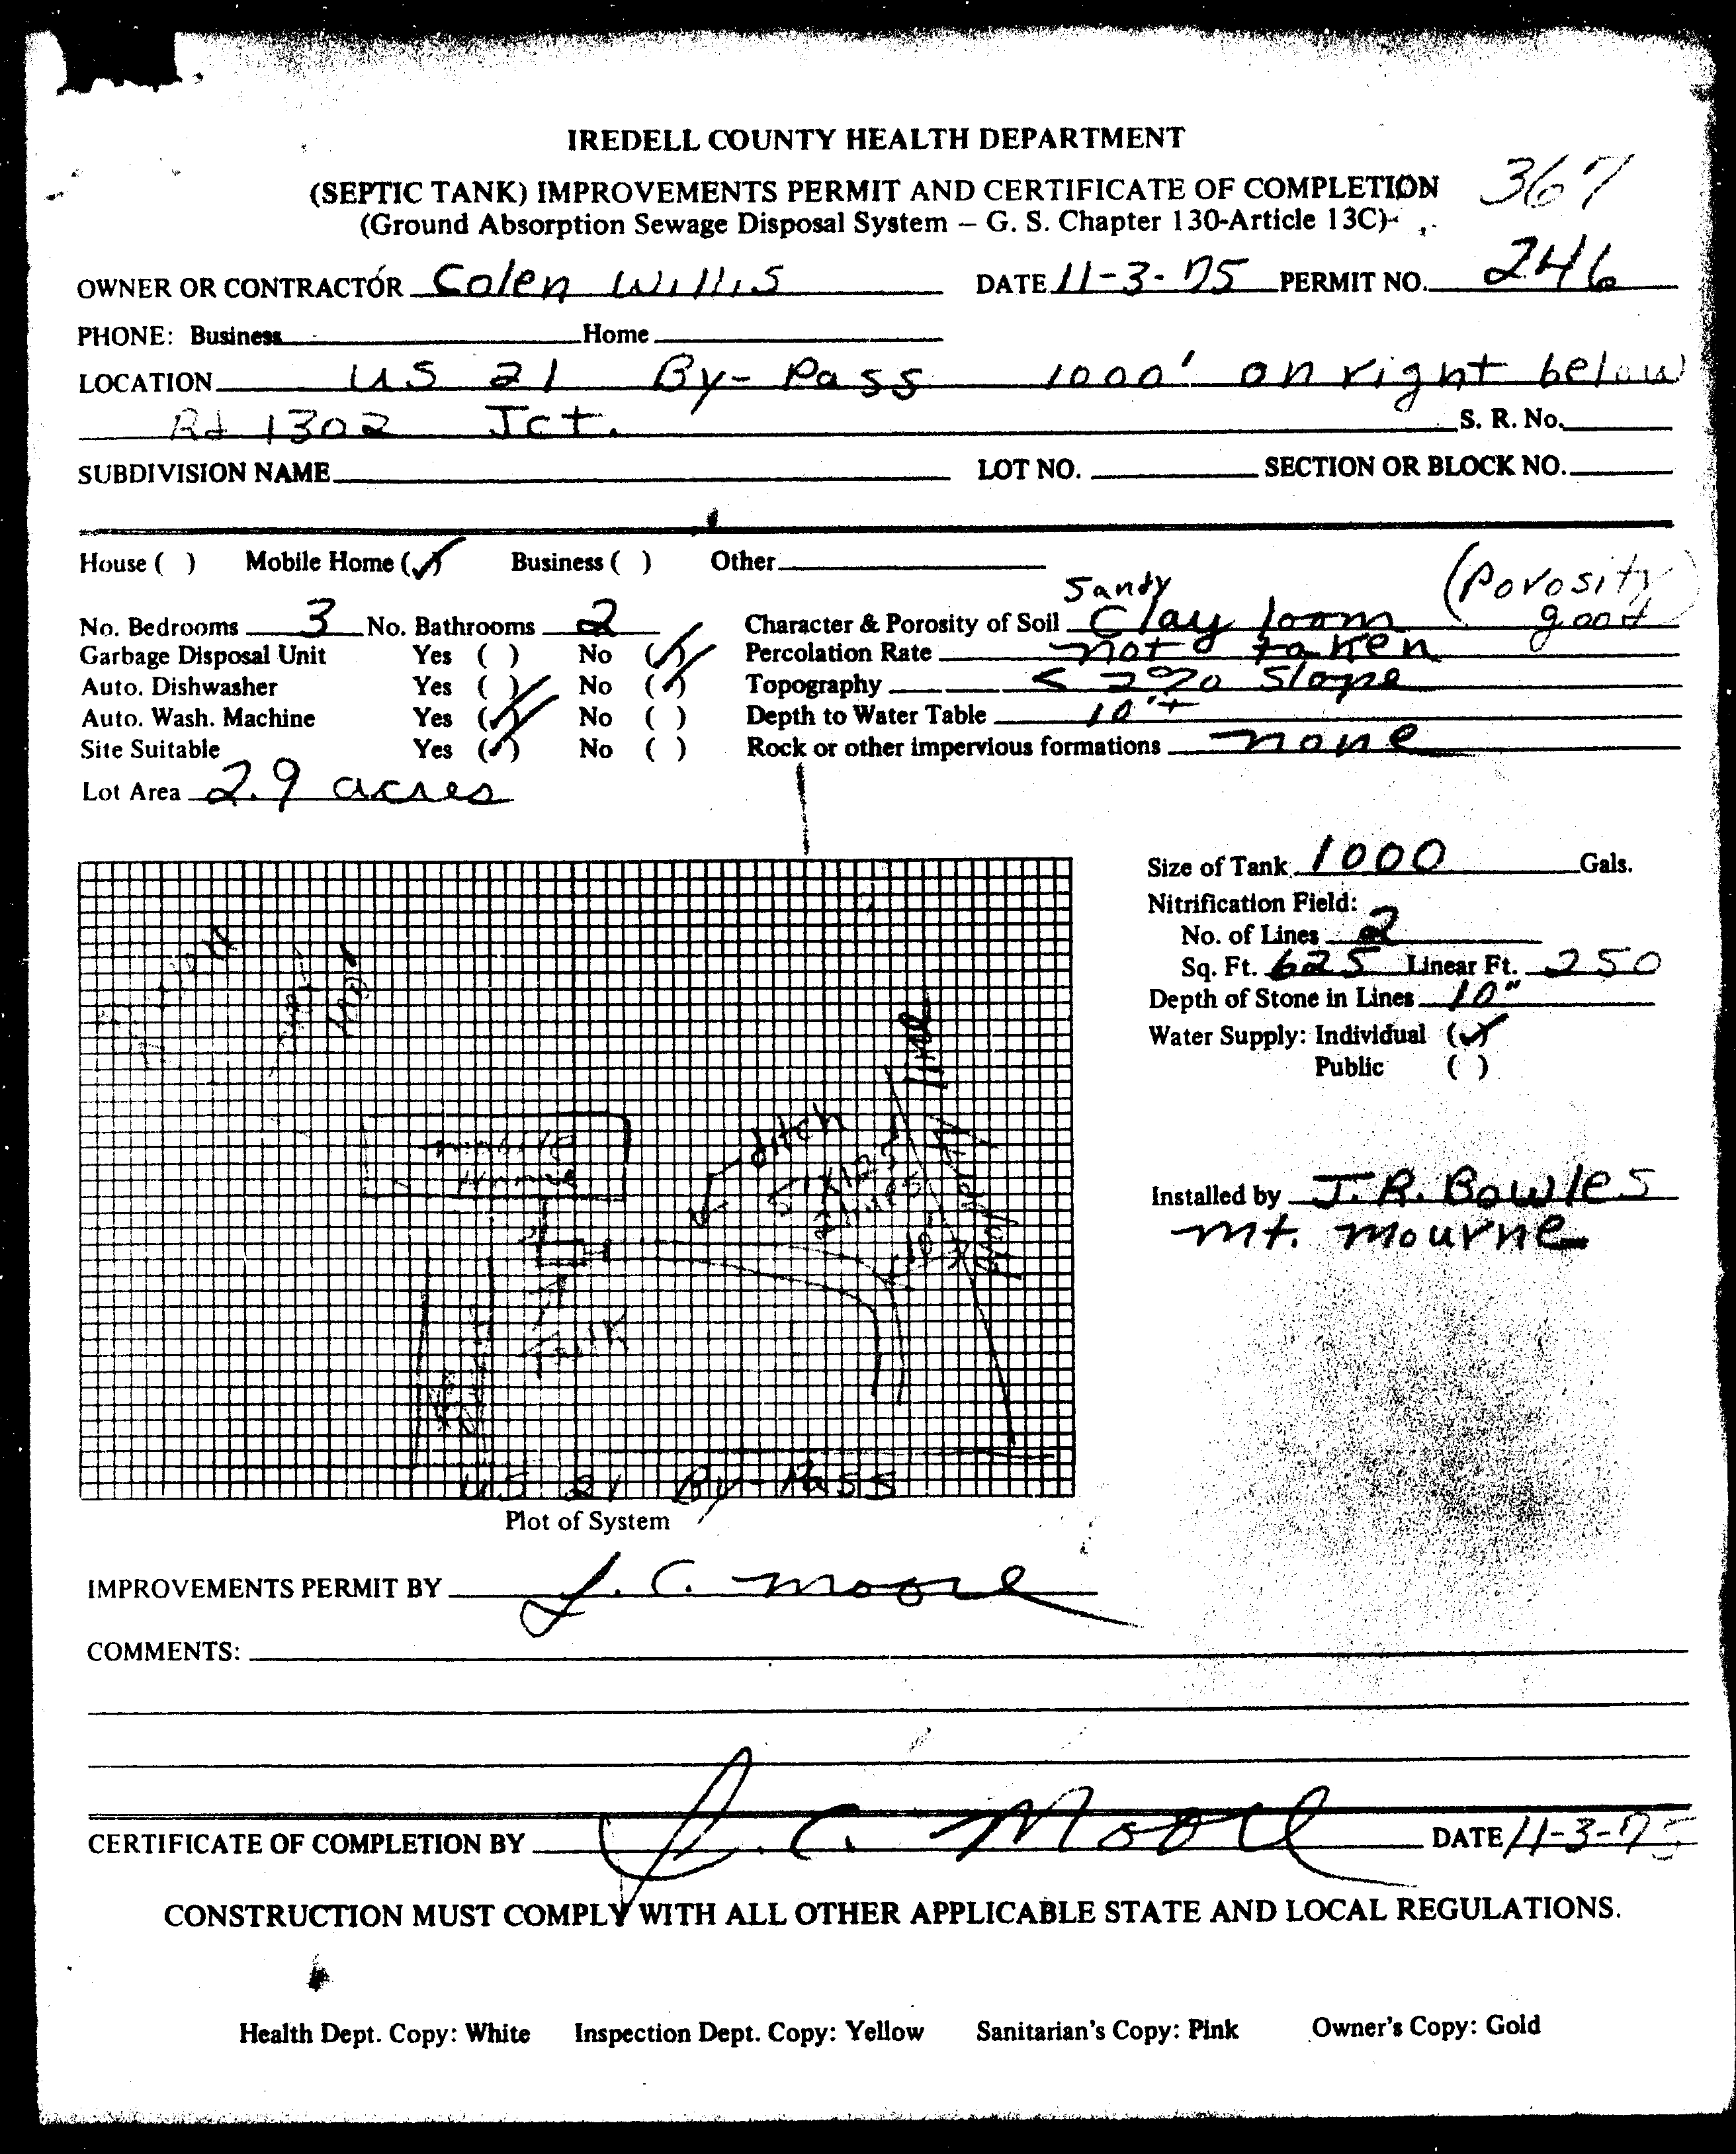 IREDELL COUNTY HEALTH DEPARTMENT
(SEPTIC TANK) IMPROVEMENTS PERMIT AND CERTIFICATE OF COMPLETION 367
(Ground Absorption Sewage Disposal System – G. S. Chapter 130-Article 13C)
OWNER OR CONTRACTOR Colen Willis DATE 11-3-75 PERMIT NO. 246
PHONE: Business Home
LOCATION US 21 By-Pass 1000' on right below
Rd 1302 Jct. S. R. No.
SUBDIVISION NAME LOT NO. SECTION OR BLOCK NO.
House ( ) Mobile Home (✓) Business ( ) Other
No. Bedrooms 3 No. Bathrooms 2 Character & Porosity of Soil Sandy Clay loam (Porosity good)
Garbage Disposal Unit Yes ( ) No (✓) Percolation Rate not taken
Auto. Dishwasher Yes ( ) No (✓) Topography < 2% Slope
Auto. Wash. Machine Yes (✓) No ( ) Depth to Water Table 10'+
Site Suitable Yes (✓) No ( ) Rock or other impervious formations none
Lot Area 2.9 acres
Size of Tank 1000 Gals.
Nitrification Field:
No. of Lines 2
Sq. Ft. 625 Linear Ft. 250
Depth of Stone in Lines 10"
Water Supply: Individual (✓)
Public ( )
line
ditch
mobile
home
Property
2 lines
10'
Tank
Installed by J. R. Bowles
Mt. Mourne
US 21 By-Pass
Plot of System
IMPROVEMENTS PERMIT BY J. C. Moore
COMMENTS:
CERTIFICATE OF COMPLETION BY J. C. Moore DATE 11-3-75
CONSTRUCTION MUST COMPLY WITH ALL OTHER APPLICABLE STATE AND LOCAL REGULATIONS.
Health Dept. Copy: White Inspection Dept. Copy: Yellow Sanitarian's Copy: Pink Owner's Copy: Gold